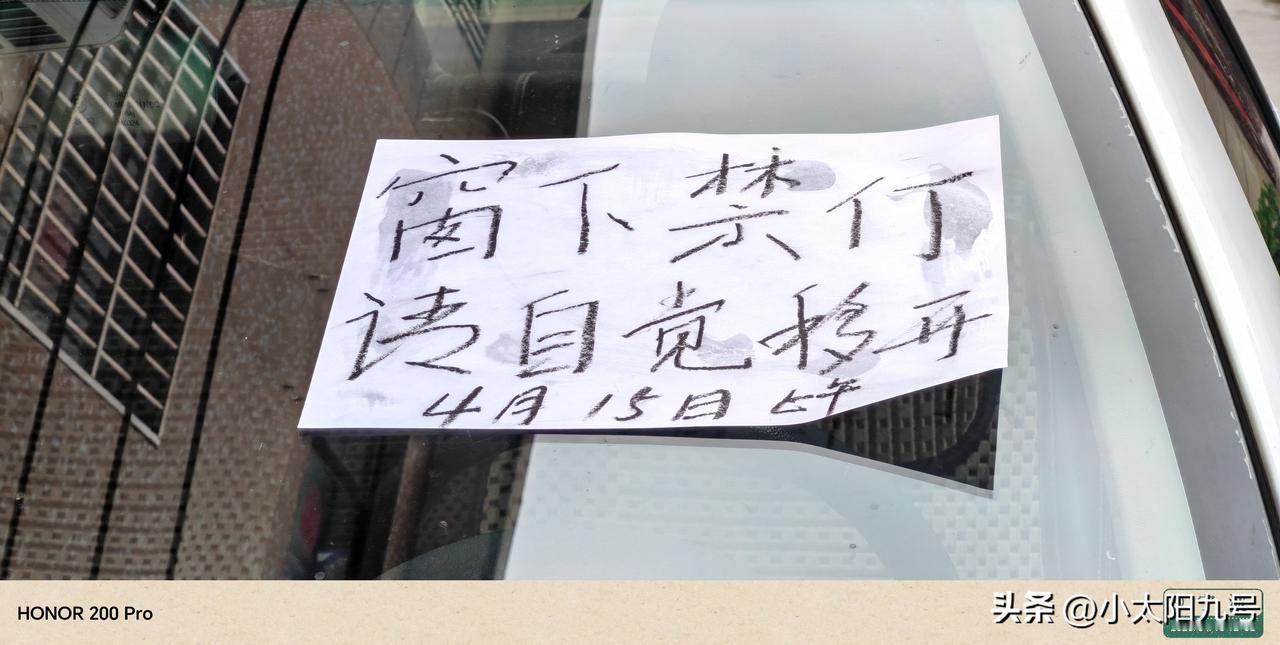 窗下禁行
请自觉移开
4月15日上午
HONOR 200 Pro
头条 @小太阳九号